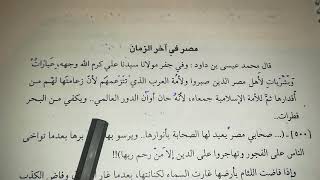 مصر في آخر الزمان
قال محمد عيسى بن داود : وفي جفر مولانا سيدنا علي كرم الله وجهه، عبارات
وبشريات لأهل مصر الذين صبروا ولأمة العرب الذي تتزعمهم لأن زعامتها لهم من
أقدارها ثم للأمة الإسلامية جمعاء، لأنه حان أوان الدور العالمي.. ويكفي من البحر
قطرات..
(٥٠٠)- (... صحابي مصر يعيد لها الصحابة بأنوارها.. ويرسو بها بربها بعدما تواخى
الناس على الفجور وتهاجروا على الدين إلا من رحم ربها)!!
وإذا فاضت اللئام بشرها غارت السماء لكنانتها، بعدما غار الصدق وفاض الكذب